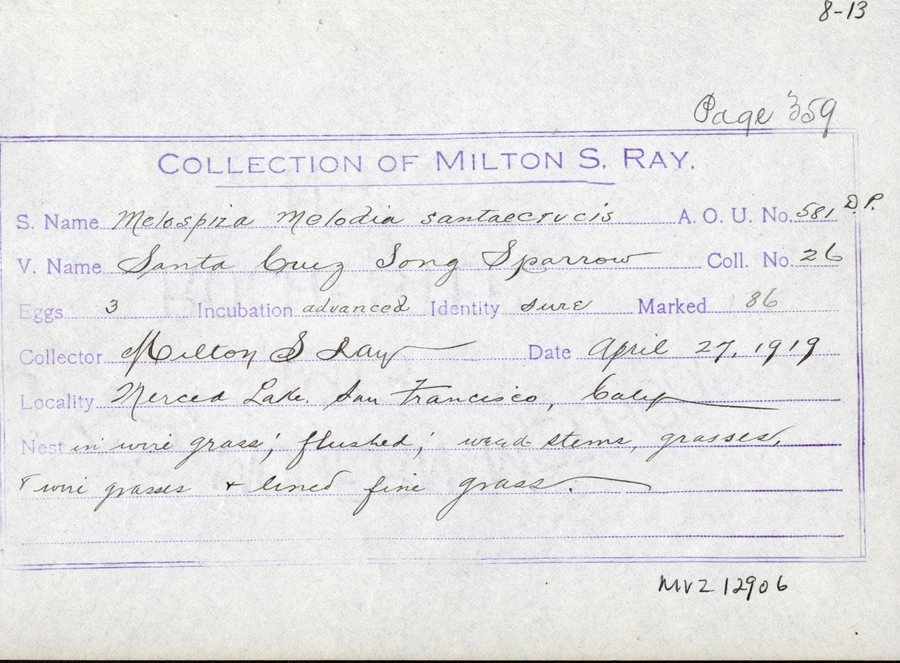 8-13
Page 359
COLLECTION OF MILTON S. RAY.
S. Name Melospiza melodia santaecrucis A. O. U. No. 581 D.P.
V. Name Santa Cruz Song Sparrow Coll. No. 26
Eggs 3 Incubation advanced Identity sure Marked 86
Collector Milton S Ray Date April 27, 1919
Locality Merced Lake. San Francisco, Calif
Nest in wire grass; flushed; weed-stems, grasses,
wire grasses + lined fine grass.
MVZ 12906